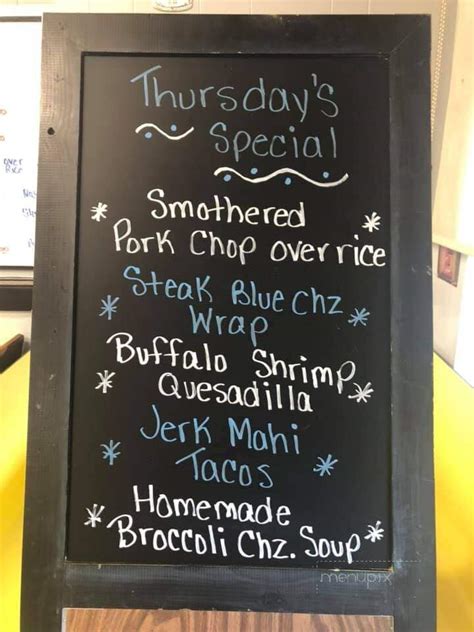 Thursday's
Special
Smothered
Pork Chop over rice
Steak Blue Chz
Wrap
Buffalo Shrimp
Quesadilla
Jerk Mahi
Tacos
Homemade
Broccoli Chz. Soup
over
Rice
menupix